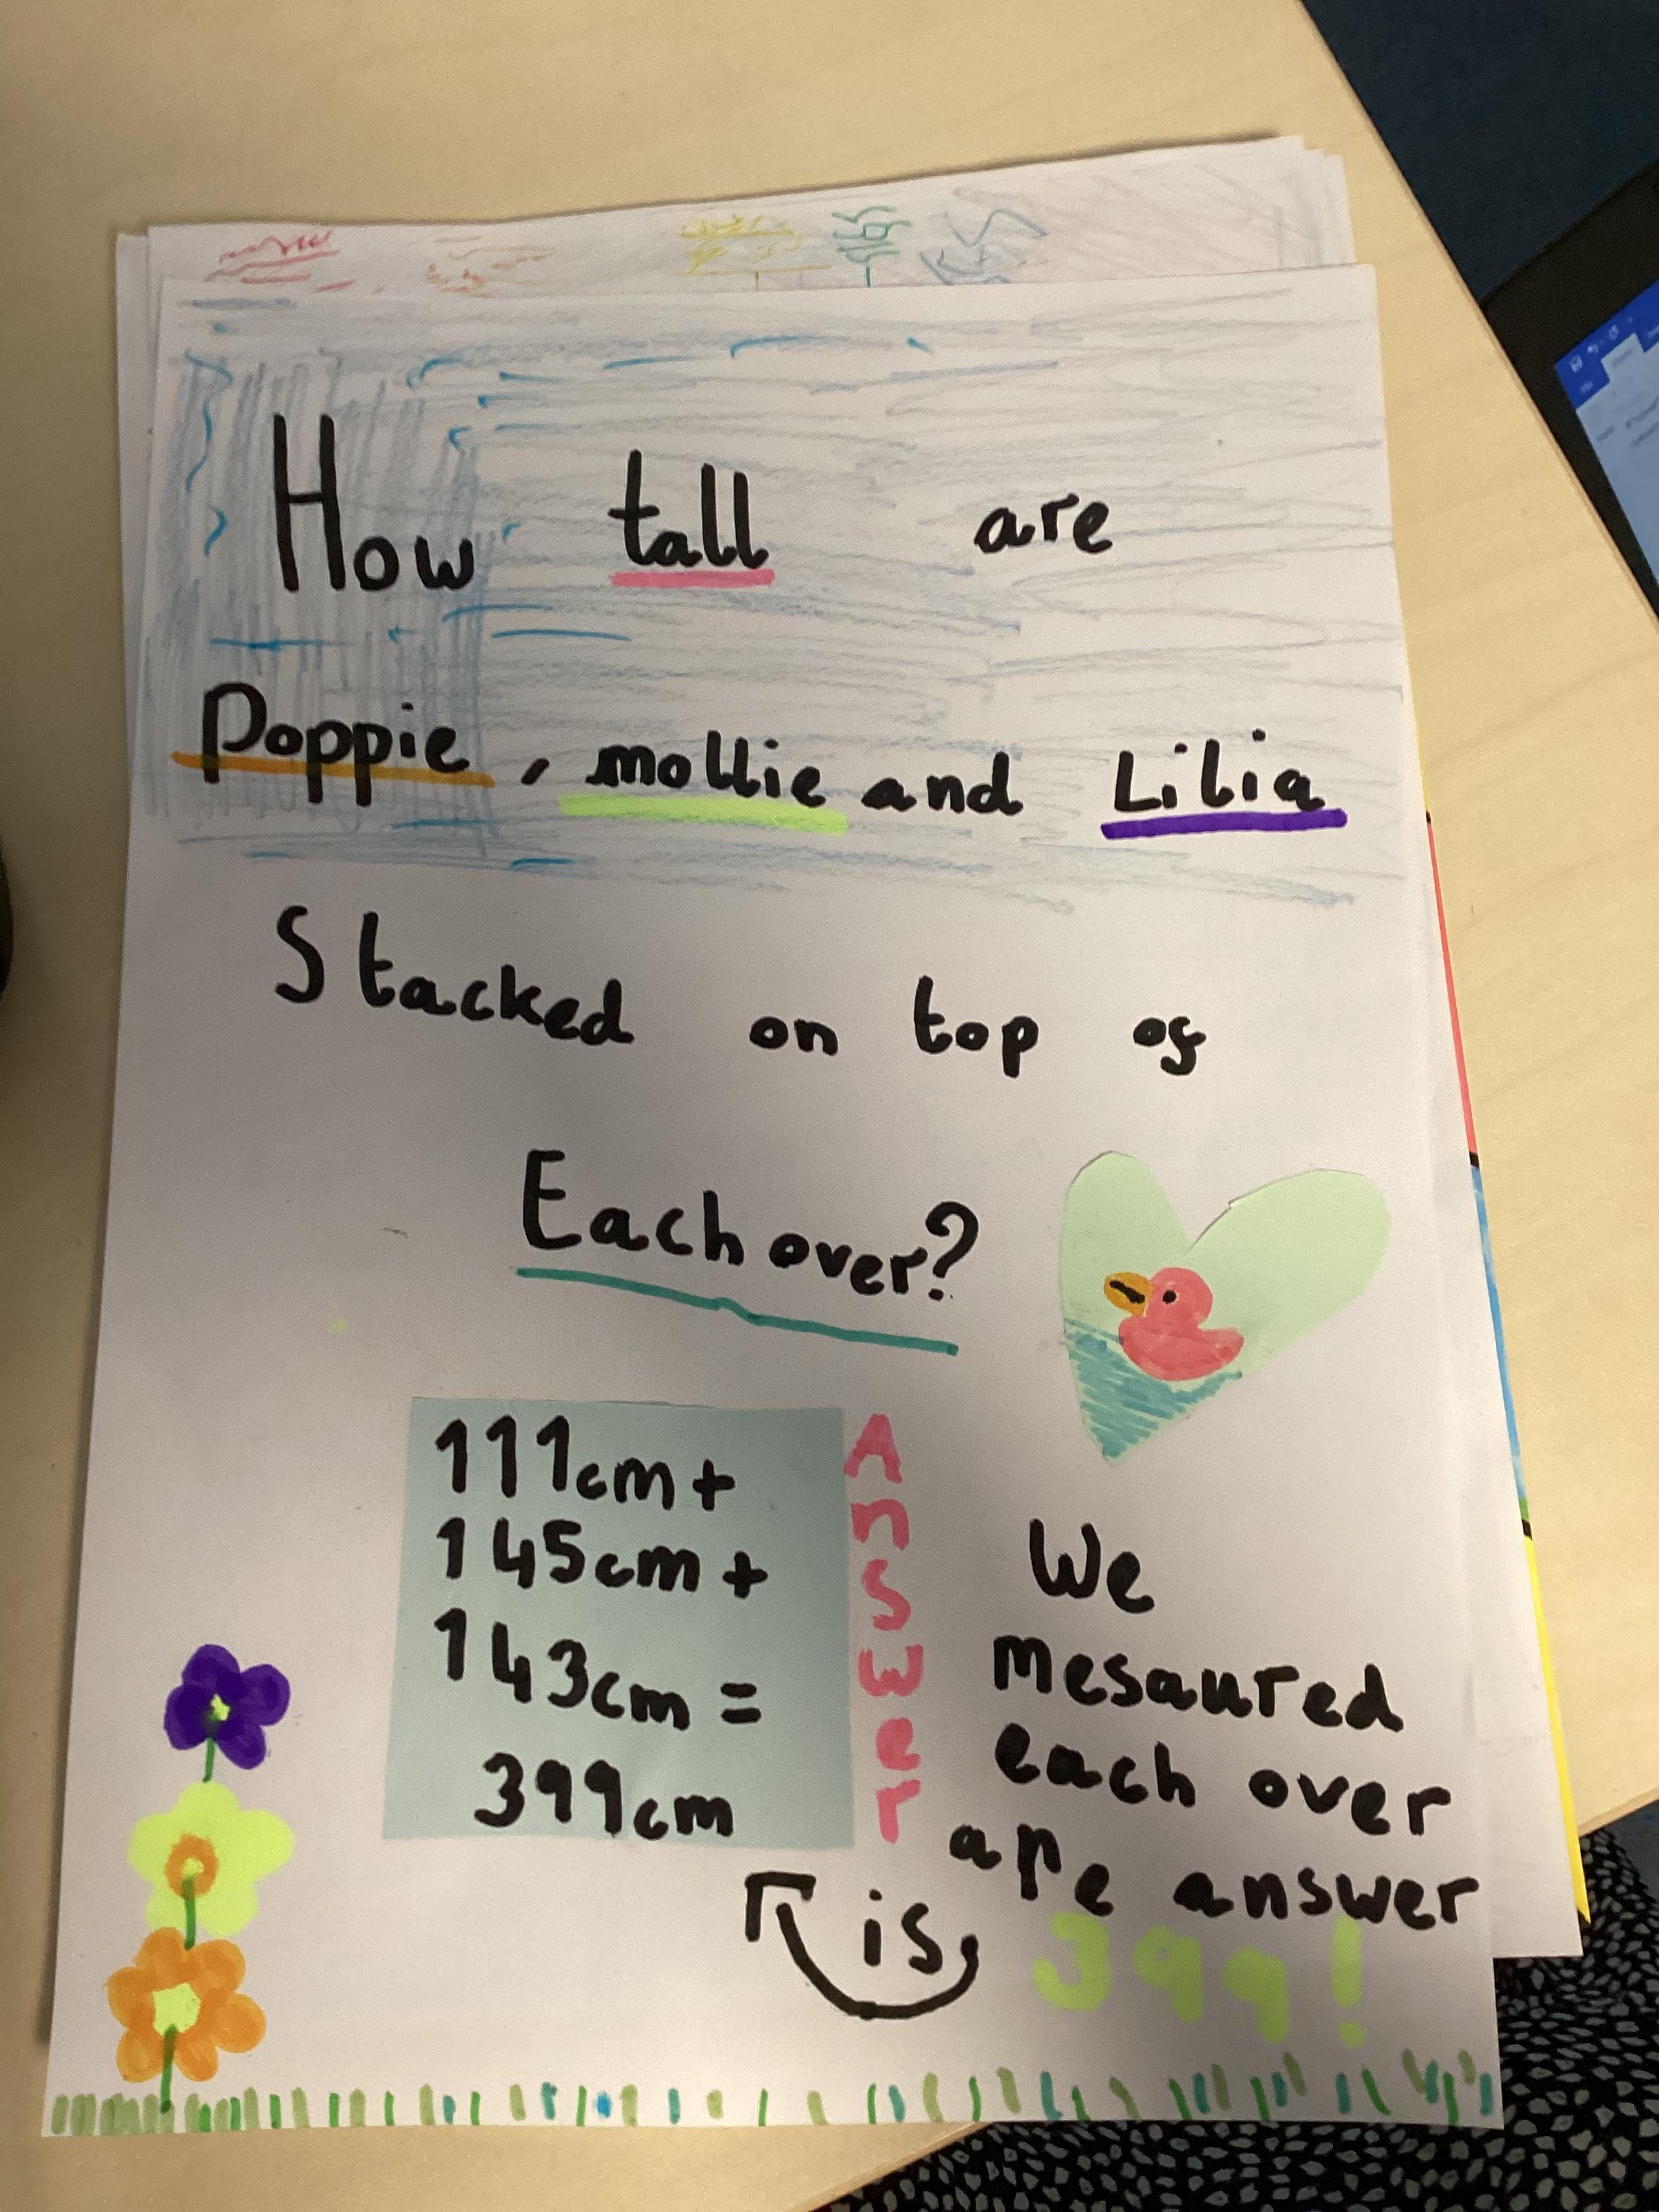 How tall are
Poppie, mollie and Lilia
Stacked on top of
Each over?
111cm+
145cm+
143cm=
399cm
Answer
We
mesaured
each over
are answer
is 399!